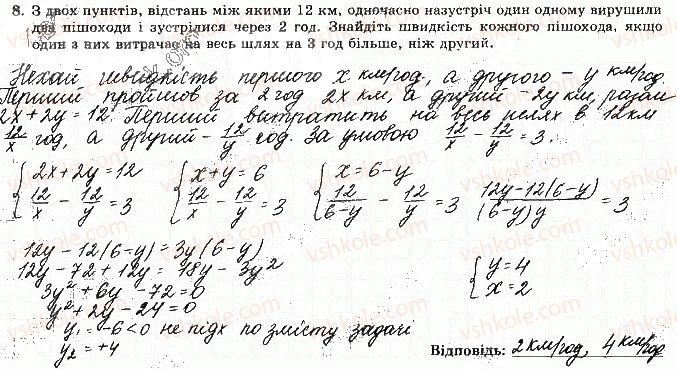 8. З двох пунктів, відстань між якими 12 км, одночасно назустріч один одному вирушили
два пішоходи і зустрілися через 2 год. Знайдіть швидкість кожного пішохода, якщо
один з них витрачає на весь шлях на 3 год більше, ніж другий.
Нехай швидкість першого x км/год, а другого – y км/год.
Перший пройшов за 2 год 2x км, а другий – 2y км, разом
2x + 2y = 12. Перший витратить на весь шлях в 12 км
12/x год, а другий – 12/y год. За умовою 12/x - 12/y = 3.
{2x + 2y = 12 {x + y = 6 {x = 6 - y
12/x - 12/y = 3 12/x - 12/y = 3 12/(6-y) - 12/y = 3 (12y - 12(6-y))/((6-y)y) = 3
12y - 12(6-y) = 3y(6-y)
12y - 72 + 12y = 18y - 3y²
3y² + 6y - 72 = 0
y² + 2y - 24 = 0
y₁ = -6 < 0 не підх по змісту задачі
y₂ = +4
{y = 4
x = 2
Відповідь: 2 км/год, 4 км/год
vshkole.com